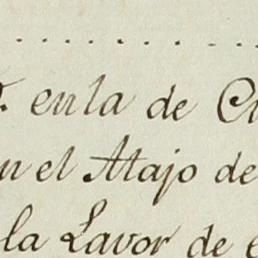 en la de
en el Atajo de
la Lavor de